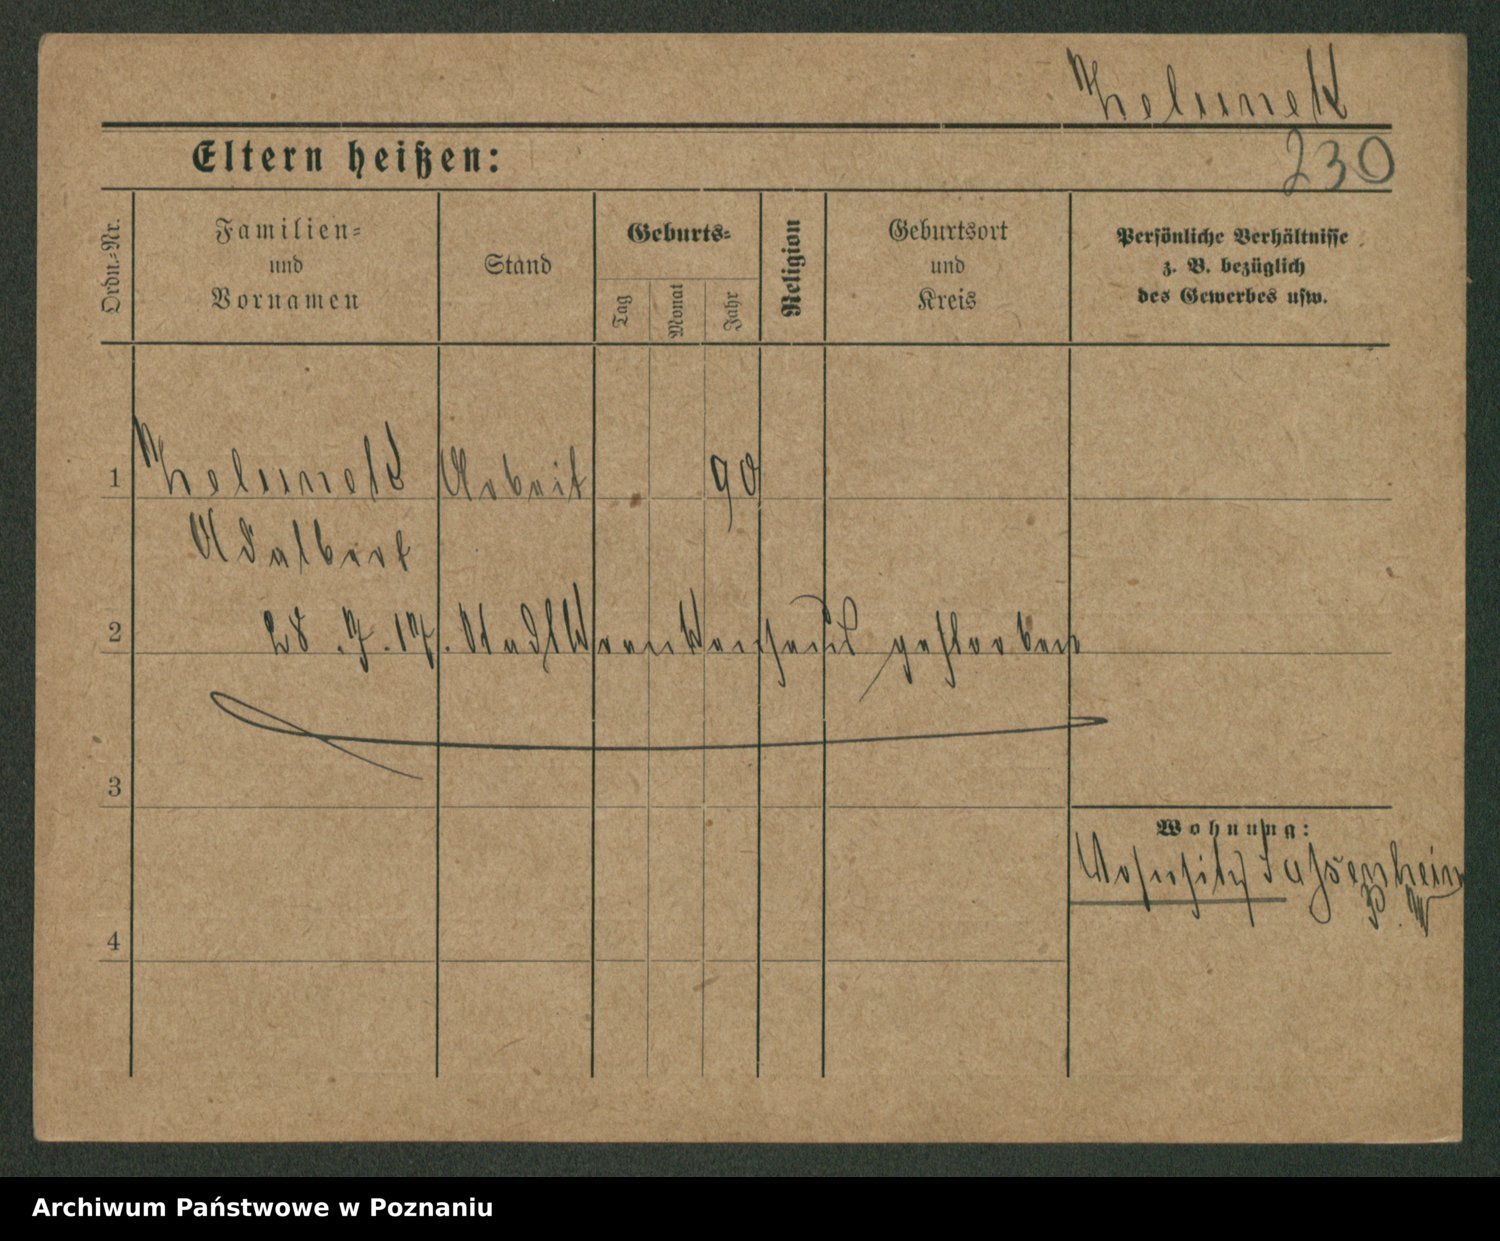 Zelunek
230
Eltern heißen:
Ordn.=Nr.
Familien=
und
Vornamen
Stand
Geburts=
Tag
Monat
Jahr
Religion
Geburtsort
und
Kreis
Persönliche Verhältnisse
z. B. bezüglich
des Gewerbes usw.
1
Zelunek Arbeit 90
Adalbert
2
28.7.17. Stadtkrankenhaus gestorben
3
Wohnung:
Wohnsitz
4
Archiwum Państwowe w Poznaniu